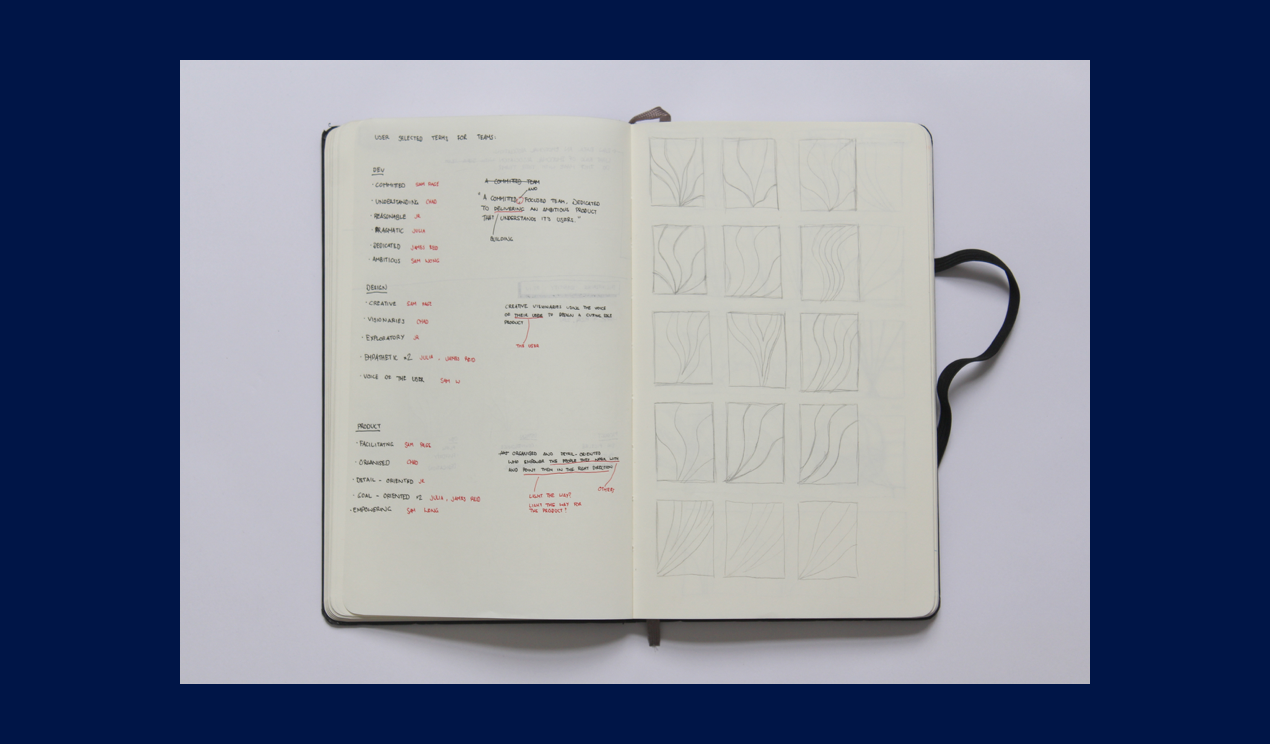 USER SELECTED TERMS FOR TEAMS:
DEV
· COMMITTED SAM
· UNDERSTANDING CHAD
· REASONABLE JR
· PRAGMATIC JULIA
· DEDICATED JAMES REID
· AMBITIOUS SAM WONG
A COMMITTED TEAM
AND
"A COMMITTED, FOCUSED TEAM. DEDICATED
TO DELIVERING AN AMBITIOUS PRODUCT
THAT UNDERSTANDS IT'S USERS."
BUILDING
DESIGN
· CREATIVE SAM
· VISIONARIES CHAD
· EXPLORATORY JR
· EMPATHETIC x2 JULIA, JAMES REID
· VOICE OF THE USER SAM W
CREATIVE VISIONARIES USING THE VOICE
OF THEIR USER TO DESIGN A CUTTING EDGE
PRODUCT
THE USER
PRODUCT
· FACILITATING SAM
· ORGANIZED CHAD
· DETAIL - ORIENTED JR
· GOAL - ORIENTED x2 JULIA, JAMES REID
· EMPOWERING SAM
ORGANIZED AND DETAIL-ORIENTED
WHO THE PEOPLE THEY WORK WITH
AND POINT THEM IN THE RIGHT DIRECTION
OTHERS
LIGHT THE WAY?
LIGHT THE WAY FOR
THE PRODUCT?